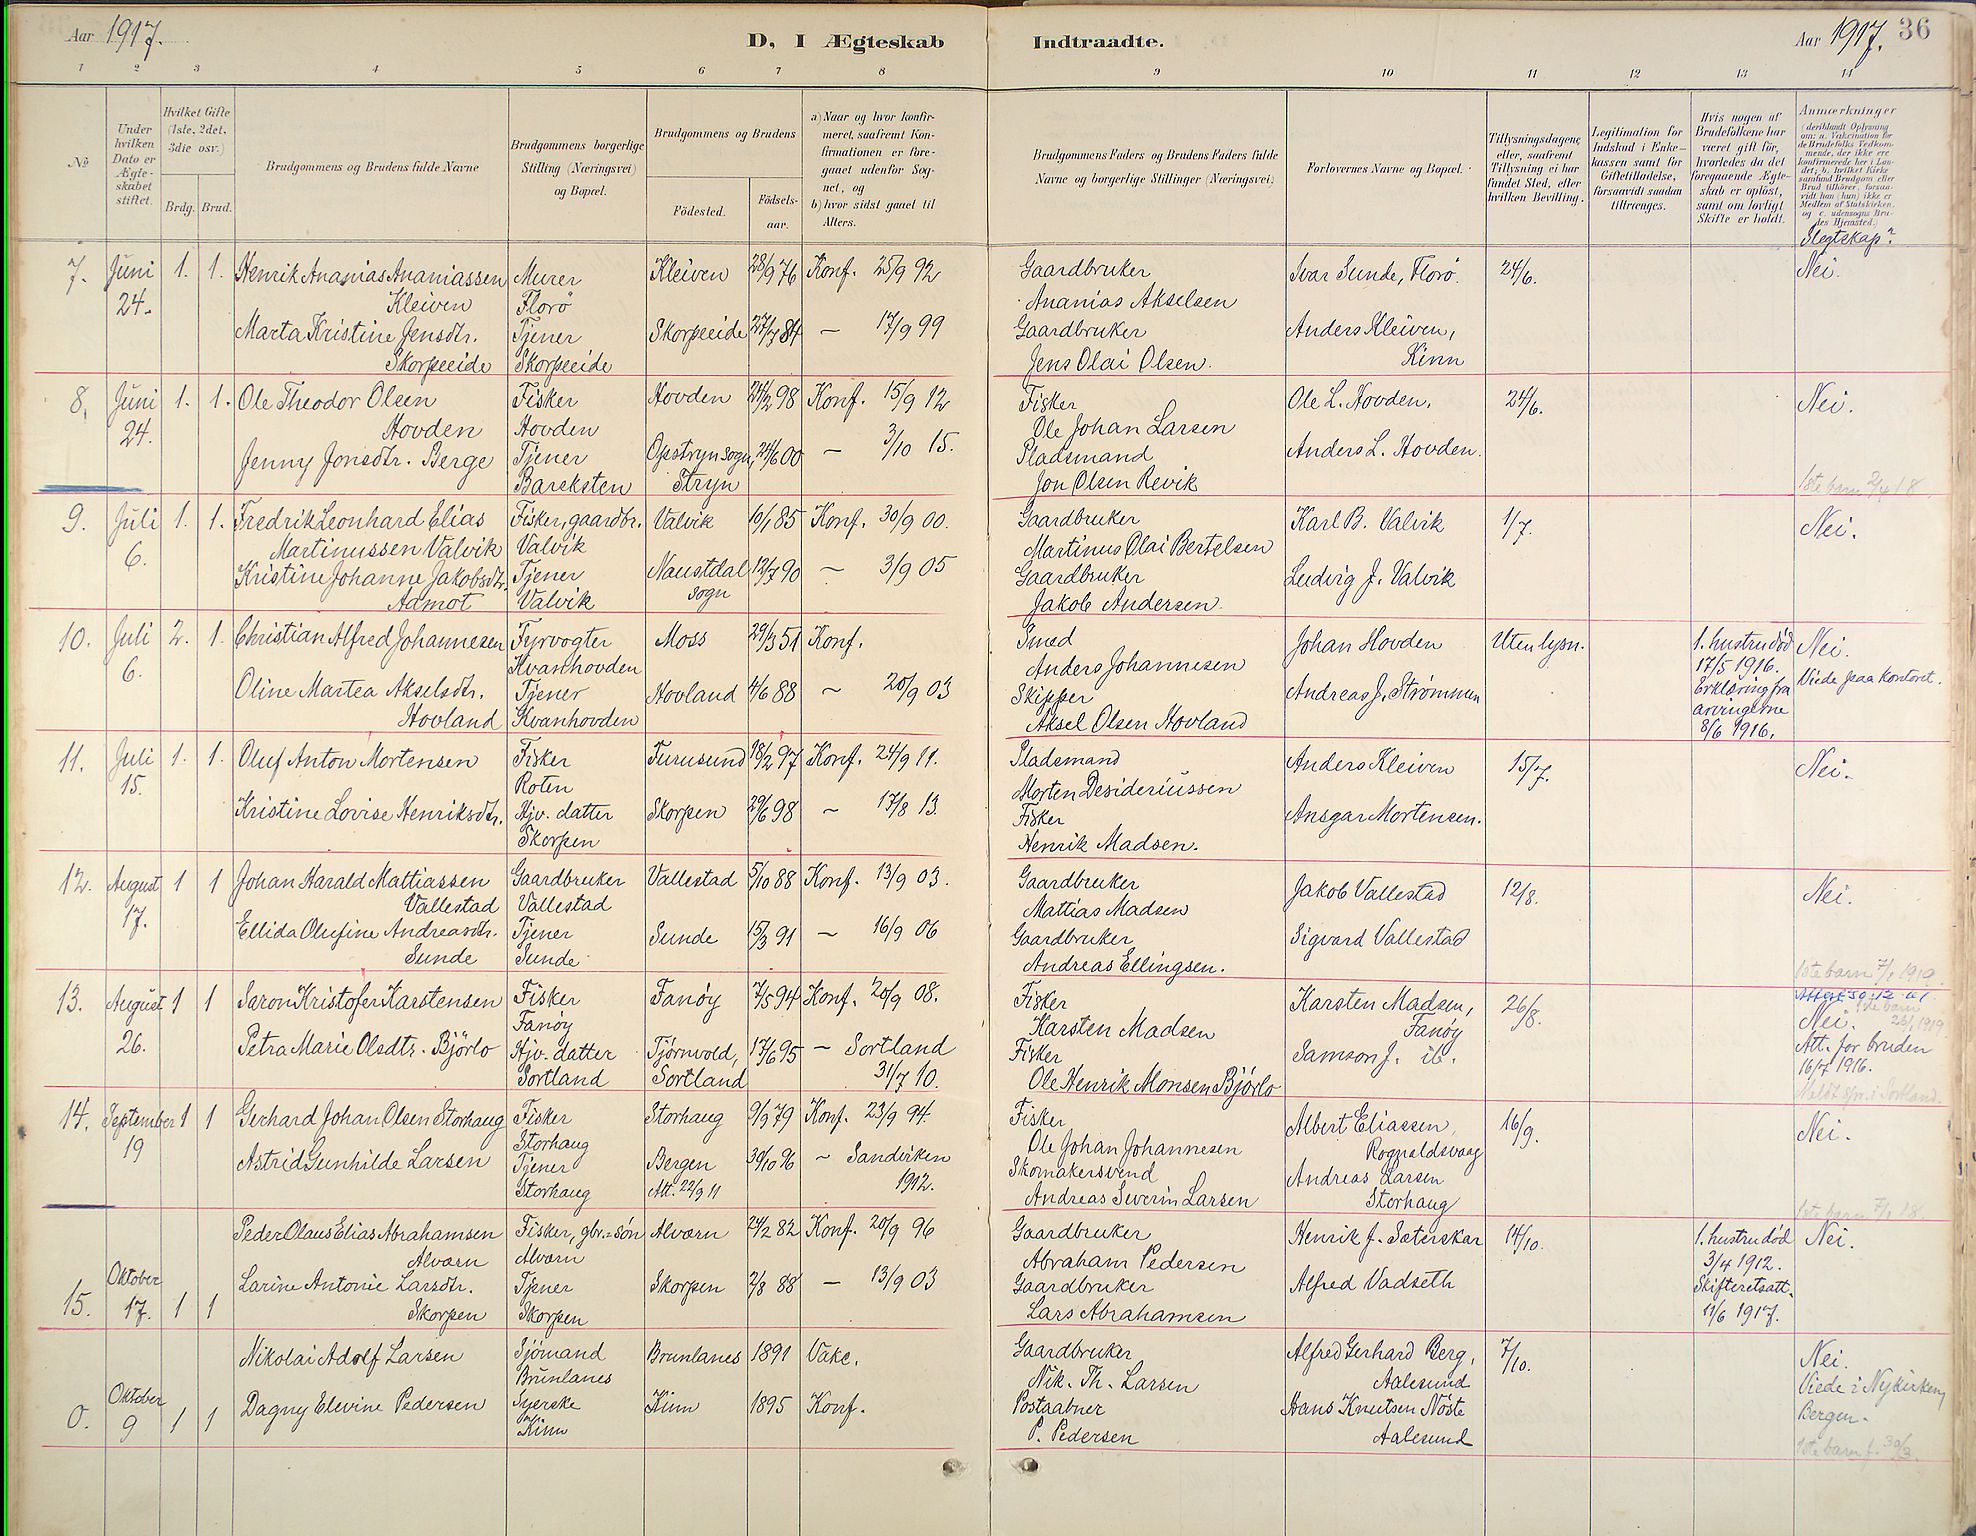 Aar 1917.
D, I Ægteskab Indtraadte.
Aar 1917. 36
1 2 3 4 5 6 7 8 9 10 11 12 13 14
№
Under hvilken Dato er Ægteskabet stiftet.
Hvilket Gifte (1ste, 2det, 3die osv.)
Brdg. Brud.
Brudgommens og Brudens fulde Navne
Brudgommens borgerlige Stilling (Næringsvei) og Bopæl.
Brudgommens og Brudens
Födested.
Födselsaar.
a) Naar og hvor konfirmeret, saafremt Konfirmationen er foregaaet udenfor Sognet, og
b) hvor sidst gaaet til Alters.
Brudgommens Faders og Brudens Faders fulde Navne og borgerlige Stillinger (Næringsvei)
Forlovernes Navne og Bopæl.
Tillysningsdagene, eller, saafremt Tillysning ei har fundet Sted, efter hvilken Bevilling.
Legitimation for Indskud i Enkekassen samt for Giftetilladelse, forsaavidt saadan tiltrænges.
Hvis nogen af Brudefolkene har været gift før, hvorledes da det foregaaende Ægteskab er opløst, samt om lovligt Skifte er holdt.
Anmærkninger
(deriblandt Oplysning om: a. Vaksination for de Brudefolks Vedkommende, der ikke ere konfirmerede her i Landet; b. hvilket Kirkesamfund Brudgom eller Brud tilhører, forsaavidt han (hun) ikke er Medlem af Statskirken, og c. udensogns Brudes Hjemsted.)
Slegtskap?
7. Juni 1. 1. Henrik Ananias Ananiassen Murer Kleiven 28/9 76 Konf. 25/9 92 Gaardbruker Ivar Sunde, Florö. 24/6. Nei.
24. Kleiven Florö Ananias Akselsen
Marta Kristine Jensdtr. Tjener Skorpeeide 27/3 84 — 17/9 99 Gaardbruker Anders Kleiven,
Skorpeeide Skorpeeide Jens Olai Olsen. Kinn
8. Juni 1. 1. Ole Theodor Olsen Fisker Hovden 24/2 98 Konf. 15/9 12 Fisker Ole L. Hovden. 24/6. Nei.
24. Hovden Hovden Ole Johan Larsen
Jenny Jonsdtr. Berge Tjener Opstryn sogn, 24/6 00 — 3/10 15. Pladsmand Anders L. Hovden.
Bareksten Stryn Jon Olsen Revik 1ste barn 2/4 18.
9. Juli 1. 1. Fredrik Leonhard Elias Fisker, gaardbr. Valvik 10/1 85 Konf. 30/9 00. Gaardbruker Karl B. Valvik 1/7. Nei.
6. Martinussen Valvik Valvik Martinus Olai Bertelsen
Kristine Johanne Jakobsdtr. Tjener Naustdal 12/7 90 — 3/9 05 Gaardbruker Ludvig J. Valvik
Aamot Valvik sogn Jakob Andersen.
10. Juli 2. 1. Christian Alfred Johannesen Fyrvogter Moss 29/3 51 Konf. Smed Johan Hovden Uten lysn. 1. hustru död Nei.
6. Kvanhovden Anders Johannesen 17/5 1916. Viede paa kontoret.
Oline Martea Akselsdtr. Tjener Hovland 4/6 88 ~ 20/9 03 Skipper Andreas J. Strømmen Erklæring fra
Hovland Kvanhovden Aksel Olsen Hovland arvingerne
8/6 1916.
11. Juli 1. 1. Oluf Anton Mortensen Fisker Furusund 18/2 97 Konf. 24/9 11. Pladsmand Anders Kleiven 15/7. Nei.
15. Roten Morten Desideriussen
Kristine Lovise Henriksdtr. Hjv. datter Skorpen 29/6 98 ~ 17/8 13. Fisker Ansgar Mortensen.
Skorpen Henrik Madsen.
12. August 1 1 Johan Harald Mattiassen Gaardbruker Vallestad 5/10 88 Konf. 13/9 03. Gaardbruker Jakob Vallestad 12/8. Nei.
17. Vallestad Vallestad Mattias Madsen
Ellida Olufine Andreasdtr. Tjener Sunde 15/3 91 — 16/9 06 Gaardbruker Sigvard Vallestad
Sunde Sunde Andreas Ellingsen. 1ste barn 7/1 1919.
13. August 1 1 Saron Kristofer Karstensen Fisker Fanöy 7/5 94 Konf. 20/9 08. Fisker Karsten Madsen, 26/8. Nei.
26. Fanöy Karsten Madsen Fanöy
Petra Marie Olsdtr. Björlo Hjv. datter Tjörnvold, 17/6 95 — Sortland Fisker Samson J. ib. Att. for bruden
Sortland Sortland 31/7 10. Ole Henrik Monsen Björlo 16/7 1916.
14. September 1 1 Gerhard Johan Olsen Storhaug Fisker Storhaug 9/9 79 Konf. 23/9 94. Fisker Albert Eliassen, 16/9. Nei.
19 Storhaug Ole Johan Johannesen Rognaldsvaag
Astrid Gunhilde Larsen Tjener Bergen 30/10 96 ~ Sandviken Skomakersvend Andreas Larsen
Storhaug Att. 22/9 11 1912. Andreas Severin Larsen Storhaug 1ste barn 7/1 18.
Peder Olaus Elias Abrahamsen Fisker, gbr.=sön Alværn 24/2 82 Konf. 20/9 96 Gaardbruker Henrik J. Sæterskar 14/10. 1. hustru död Nei.
Alværn Alværn Abraham Pedersen 3/4 1912.
15. Oktober Larine Antonie Larsdtr. Tjener Skorpen 2/8 88 — 13/9 03 Gaardbruker Alfred Vadseth Skifteretsatt.
17. 1 1 Skorpen Skorpen Lars Abrahamsen 11/6 1917.
Nikolai Adolf Larsen Sjömand Brunlanes 1891 Vakc. Gaardbruker Alfred Gerhard Berg, 7/10. Nei.
Brunlanes Nik. Th. Larsen Aalesund Viede i Nykirken,
0. Oktober Dagny Elevine Pedersen Syerske Kinn 1895 Konf. Postaabner Hans Knutsen Nöste Bergen.
9 1 1 Kinn P. Pedersen Aalesund 1ste barn f. 30/3.